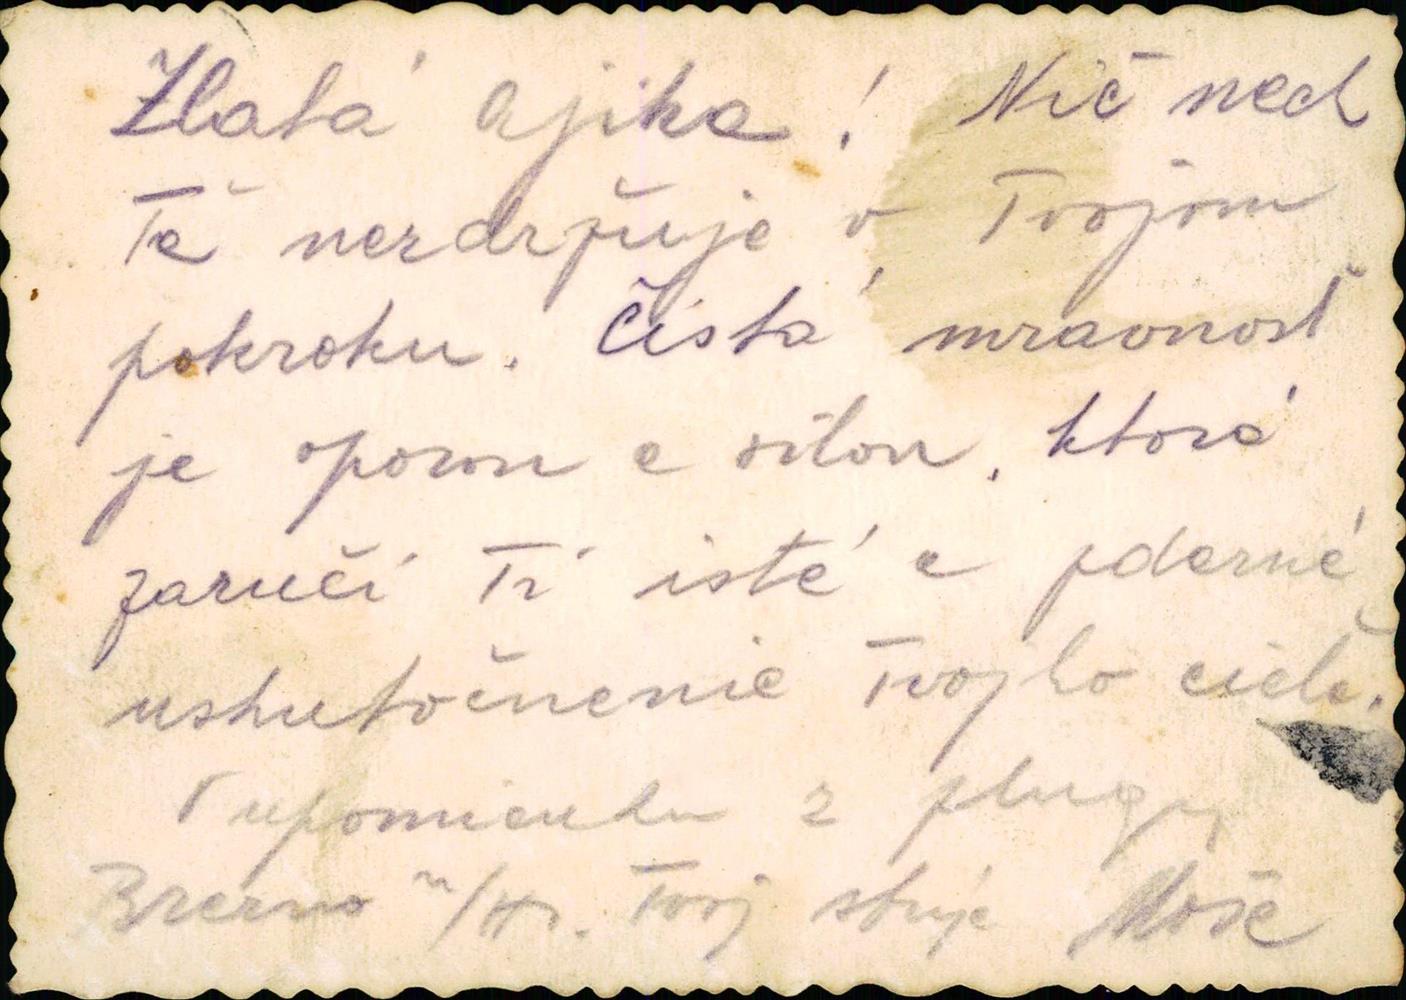 Zlatá Ajika! Nič nech
Ťa nezdržuje v Tvojom
pokroku. Čistá mravnosť
je oporou a silou, ktorá
zaručí Ti isté a zdarné
uskutočnenie Tvojho cieľa.
V upomienku z
Brezno n/Hr. Tvoj strýc Moše